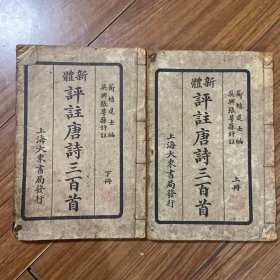 新體
蘅塘退士編
吳興張萼蓀評註
評註唐詩三百首
上冊
上海大東書局發行
新體
蘅塘退士編
吳興張萼蓀評註
評註唐詩三百首
下冊
上海大東書局發行